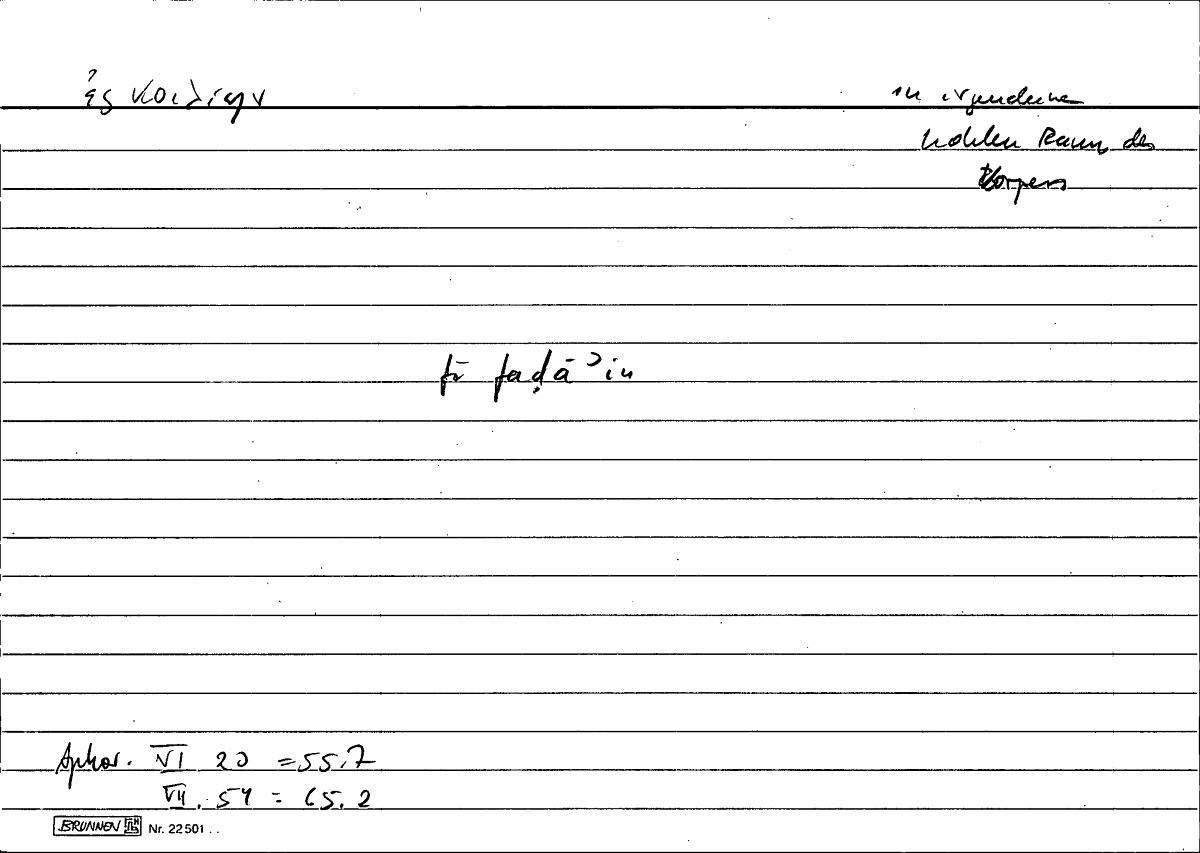 ἐς κοιλίην
in irgendeinen
hohlen Raum des
Körpers
fī faḍāʾin
Aphor. VI 20 = 55.7
VII. 54 = 65.2
BRUNNEN Nr. 22 501 . .